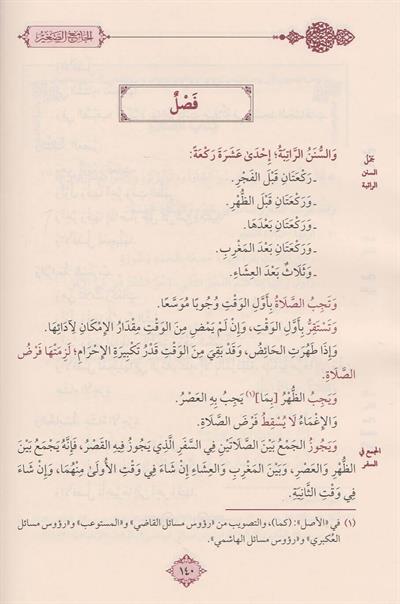 الجامع الصغير
فَصْلٌ
جمل السنن الراتبة
وَالسُّنَنُ الرَّاتِبَةُ؛ إِحْدَىٰ عَشَرَةَ رَكْعَةً:
ـ رَكْعَتَانِ قَبْلَ الفَجْرِ.
ـ وَرَكْعَتَانِ قَبْلَ الظُّهْرِ.
ـ وَرَكْعَتَانِ بَعْدَهَا.
ـ وَرَكْعَتَانِ بَعْدَ المَغْرِبِ.
ـ وَثَلَاثٌ بَعْدَ العِشَاءِ.
وَتَجِبُ الصَّلَاةُ بِأَوَّلِ الوَقْتِ وُجُوبًا مُوَسَّعًا.
وَتَسْتَقِرُّ بِأَوَّلِ الوَقْتِ، وَإِنْ لَمْ يَمْضِ مِنَ الوَقْتِ مِقْدَارُ الإِمْكَانِ لِأَدَائِهَا.
وَإِذَا طَهُرَتِ الحَائِضُ، وَقَدْ بَقِيَ مِنَ الوَقْتِ قَدْرُ تَكْبِيرَةِ الإِحْرَامِ؛ لَزِمَتْهَا فَرْضُ
الصَّلَاةِ.
وَيَجِبُ الظُّهْرُ [بِمَا](١) يَجِبُ بِهِ العَصْرُ.
وَالإِغْمَاءُ لَا يُسْقِطُ فَرْضَ الصَّلَاةِ.
الجمع في السفر
وَيَجُوزُ الجَمْعُ بَيْنَ الصَّلَاتَيْنِ فِي السَّفَرِ الَّذِي يَجُوزُ فِيهِ القَصْرُ، فَإِنَّهُ يَجْمَعُ بَيْنَ
الظُّهْرِ وَالعَصْرِ، وَبَيْنَ المَغْرِبِ وَالعِشَاءِ إِنْ شَاءَ فِي وَقْتِ الأُولَىٰ مِنْهُمَا، وَإِنْ شَاءَ
فِي وَقْتِ الثَّانِيَةِ.
(١) في «الأصل»: (كما)، والتصويب من «رؤوس مسائل القاضي» و«المستوعب» و«رؤوس مسائل
العُكبري» و«رؤوس مسائل الهاشمي».
١٤٠